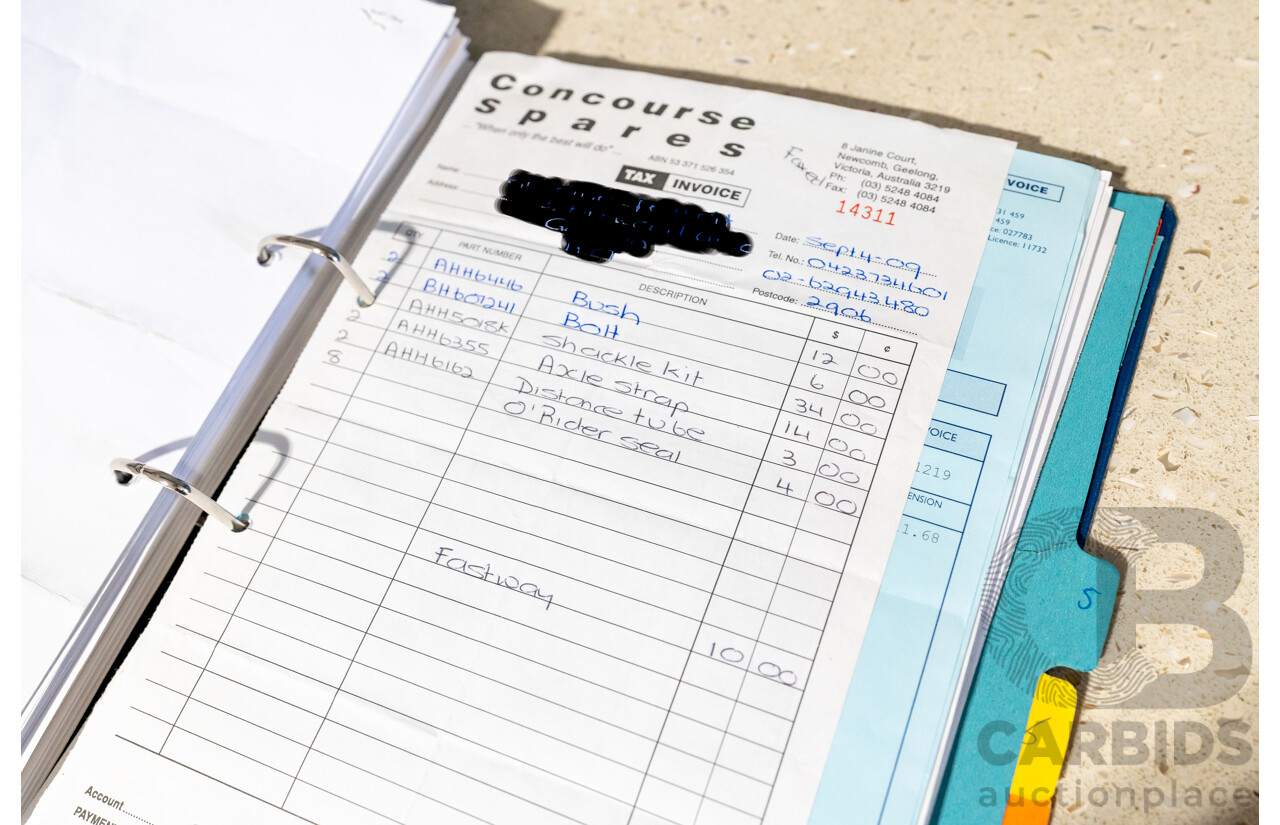 Concourse
Spares
... "When only the best will do" ...
ABN 53 371 526 354
TAX INVOICE
8 Janine Court,
Newcomb, Geelong,
Victoria, Australia 3219
Ph: (03) 5248 4084
Fax: (03) 5248 4084
14311
Name
Address
Date: Sept 4-09
Tel. No.: 0423734601
02-62943480
Postcode: 2906
QTY PART NUMBER DESCRIPTION $ ¢
2 AHH6446 Bush 12 00
2 BH607241 Bolt 6 00
2 AHH5018K Shackle kit 34 00
2 AHH6355 Axle strap 14 00
8 AHH6162 Distance tube 3 00
O'Rider seal 4 00
Fastway 10 00
Account
PAYMEN
VOICE
31 459
459
ce: 027783
Licence: 11732
VOICE
1219
ENSION
1.68
5
CARBIDS
auctionplace